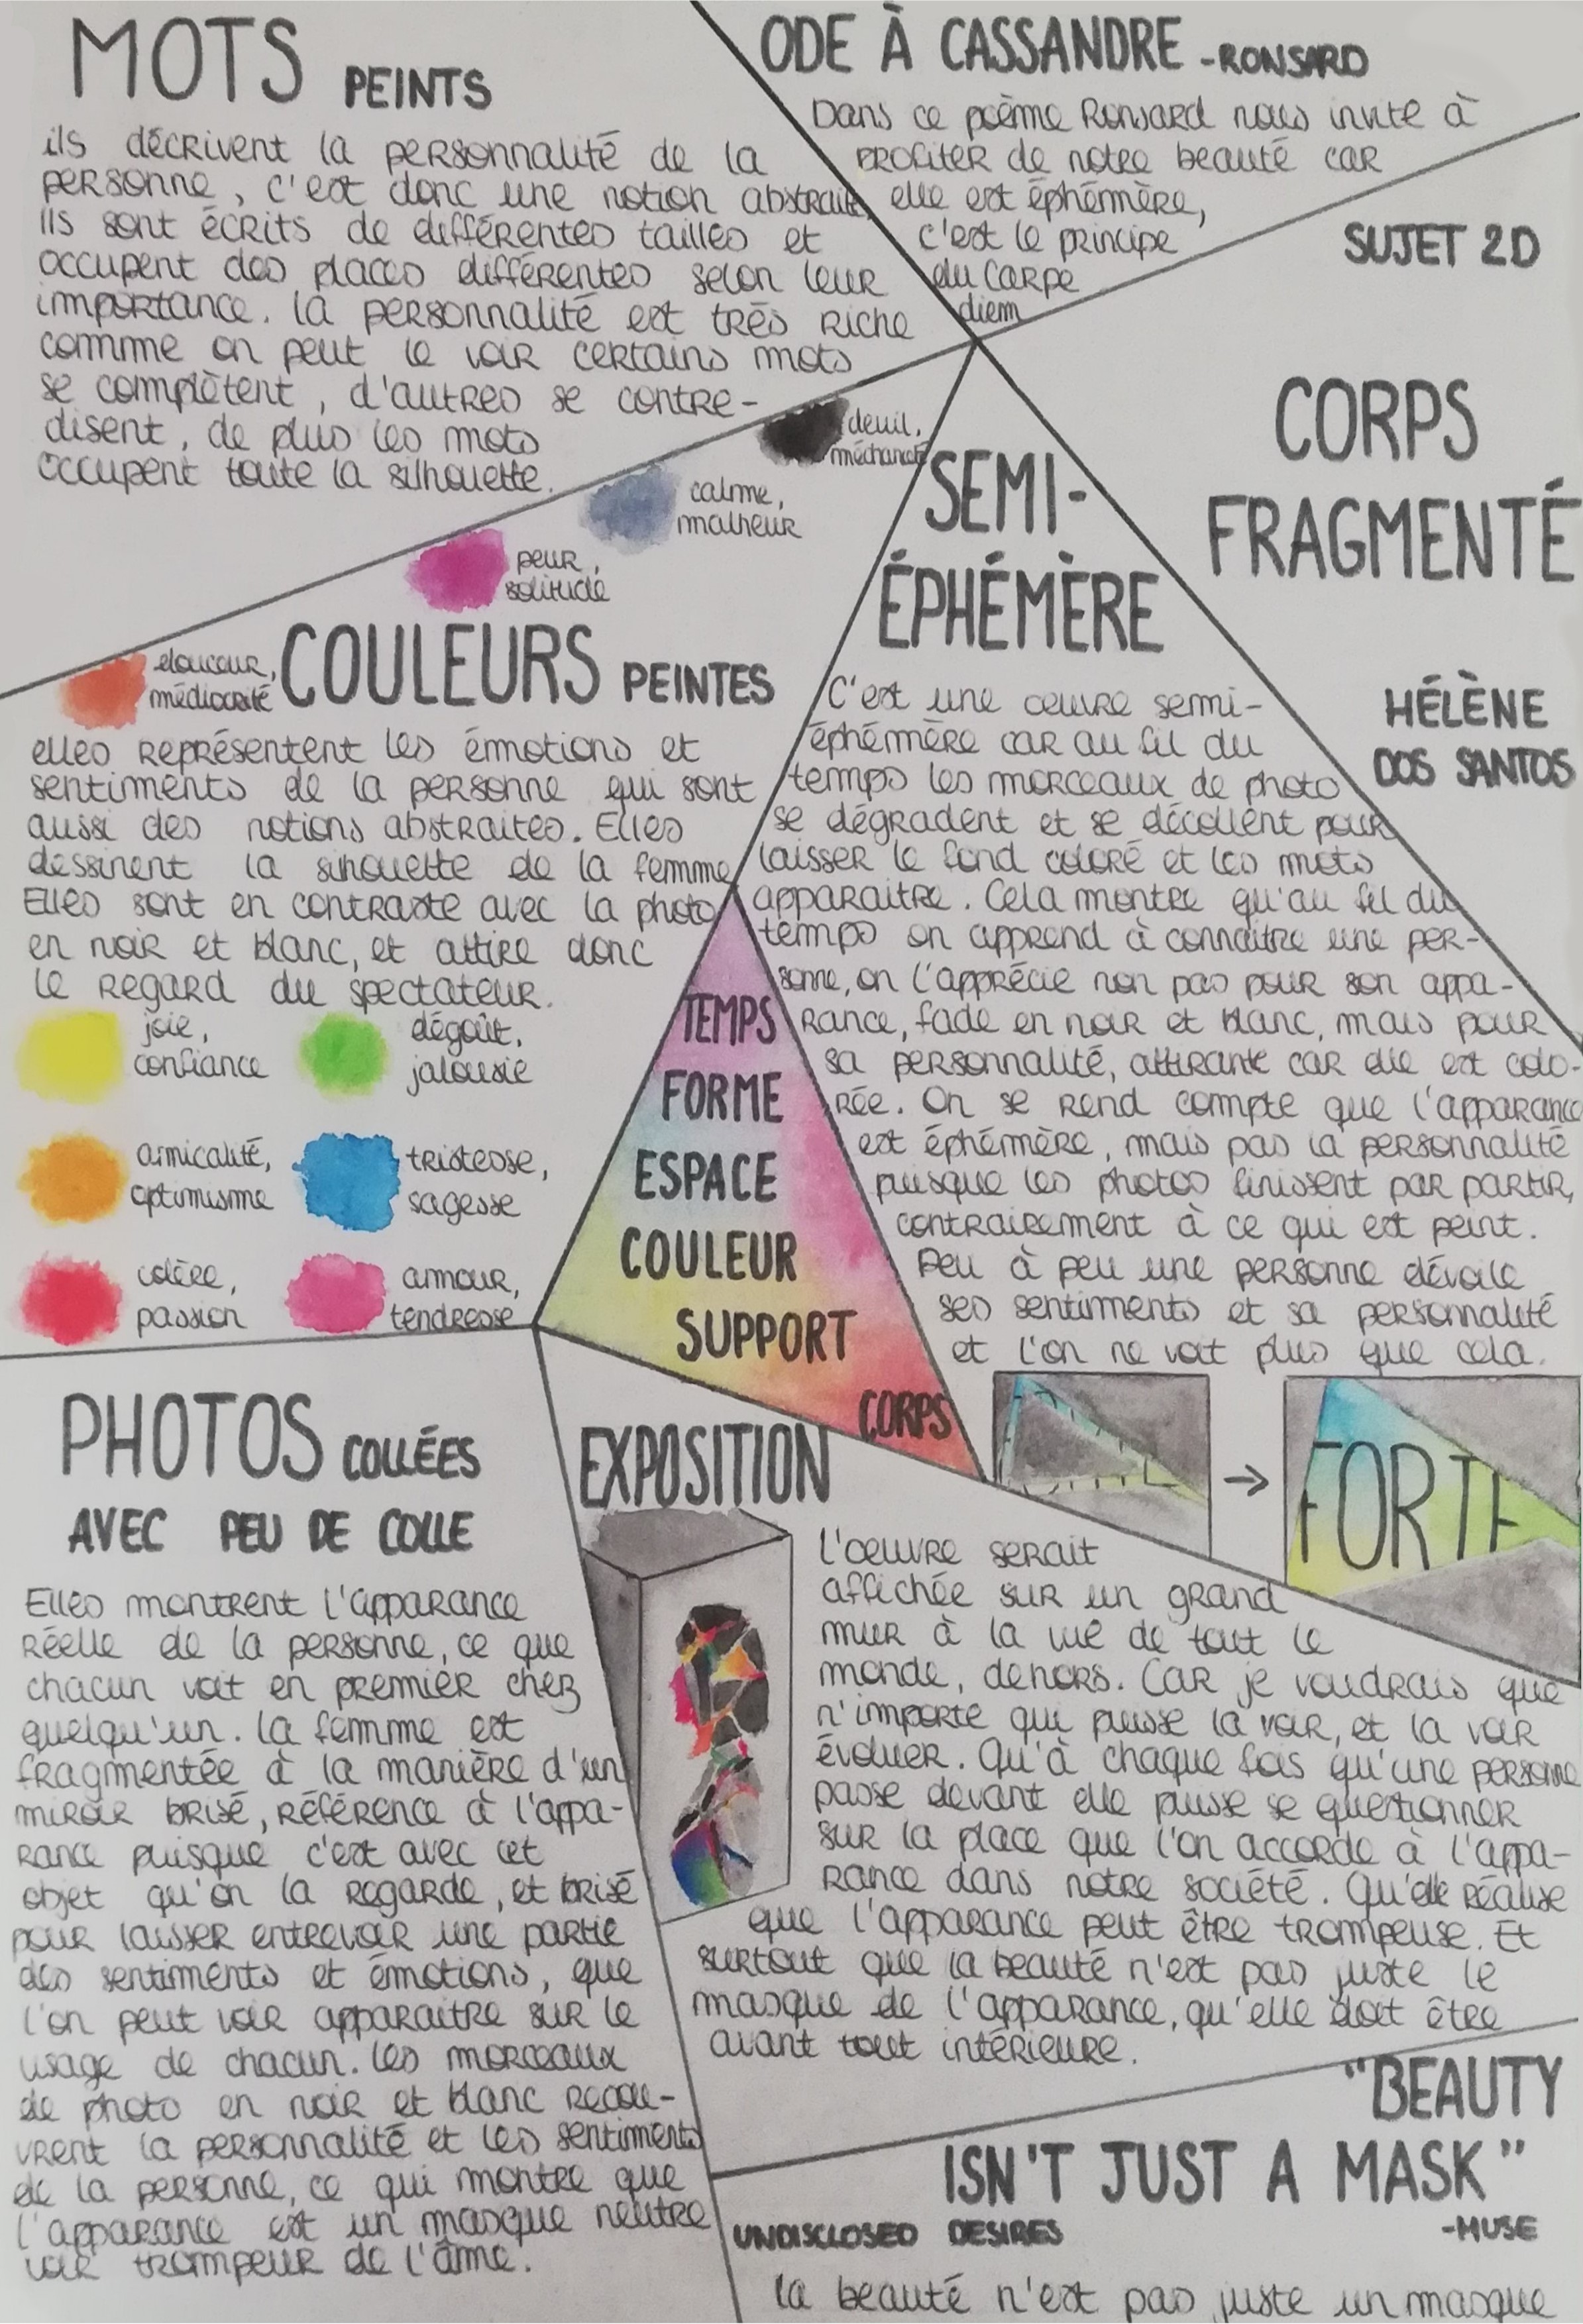 MOTS PEINTS
ils décrivent la personnalité de la
personne, c'est donc une notion abstraite,
ils sont écrits de différentes tailles et
occupent des places différentes selon leur
importance. la personnalité est très riche
comme on peut le voir certains mots
se complètent, d'autres se contre-
disent, de plus les mots
occupent toute la silhouette.
ODE À CASSANDRE -RONSARD
Dans ce poème Ronsard nous invite à
profiter de notre beauté car
elle est éphémère,
c'est le principe
du Carpe
diem
SUJET 2D
CORPS
FRAGMENTÉ
HÉLÈNE
DOS SANTOS
deuil,
méchanceté
calme,
malheur
peur,
solitude
douceur,
médiocrité
COULEURS PEINTES
elles représentent les émotions et
sentiments de la personne qui sont
aussi des notions abstraites. Elles
dessinent la silhouette de la femme
Elles sont en contraste avec la photo
en noir et blanc, et attire donc
le regard du spectateur.
joie,
confiance
dégoût,
jalousie
amicalité,
optimisme
tristesse,
sagesse
colère,
passion
amour,
tendresse
SEMI-
ÉPHÉMÈRE
C'est une oeuvre semi-
éphémère car au fil du
temps les morceaux de photo
se dégradent et se décollent pour
laisser le fond coloré et les mots
apparaitre. Cela montre qu'au fil du
temps on apprend à connaître une per-
sonne, on l'apprécie non pas pour son appa-
rance, fade en noir et blanc, mais pour
sa personnalité, attirante car elle est colo-
rée. On se rend compte que l'apparance
est éphémère, mais pas la personnalité
puisque les photos finissent par partir,
contrairement à ce qui est peint.
Peu à peu une personne dévoile
ses sentiments et sa personnalité
et l'on ne voit plus que cela.
TEMPS
FORME
ESPACE
COULEUR
SUPPORT
CORPS
FORTE
PHOTOS COLLÉES
AVEC PEU DE COLLE
Elles montrent l'apparance
réelle de la personne, ce que
chacun voit en premier chez
quelqu'un. la femme est
fragmentée à la manière d'un
miroir brisé, référence à l'appa-
rance puisque c'est avec cet
objet qu'on la regarde, et brisé
pour laisser entrevoir une partie
des sentiments et émotions, que
l'on peut voir apparaitre sur le
usage de chacun. les morceaux
de photo en noir et blanc recou-
vrent la personnalité et les sentiments
de la personne, ce qui montre que
l'apparance est un masque neutre
voir trompeur de l'âme.
EXPOSITION
L'oeuvre serait
affichée sur un grand
mur à la vue de tout le
monde, dehors. Car je voudrais que
n'importe qui puisse la voir, et la voir
évoluer. Qu'à chaque fois qu'une personne
passe devant elle puisse se questionner
sur la place que l'on accorde à l'appa-
rance dans notre société. Qu'elle réalise
que l'apparance peut être trompeuse. Et
surtout que la beauté n'est pas juste le
masque de l'apparance, qu'elle doit être
avant tout intérieure.
"BEAUTY
ISN'T JUST A MASK"
UNDISCLOSED DESIRES -MUSE
la beauté n'est pas juste un masque